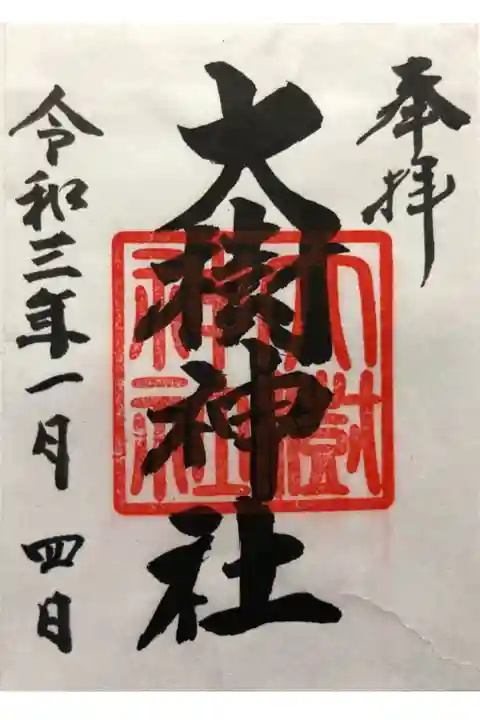 奉拝
大樹神社
大樹
神社
令和三年一月四日